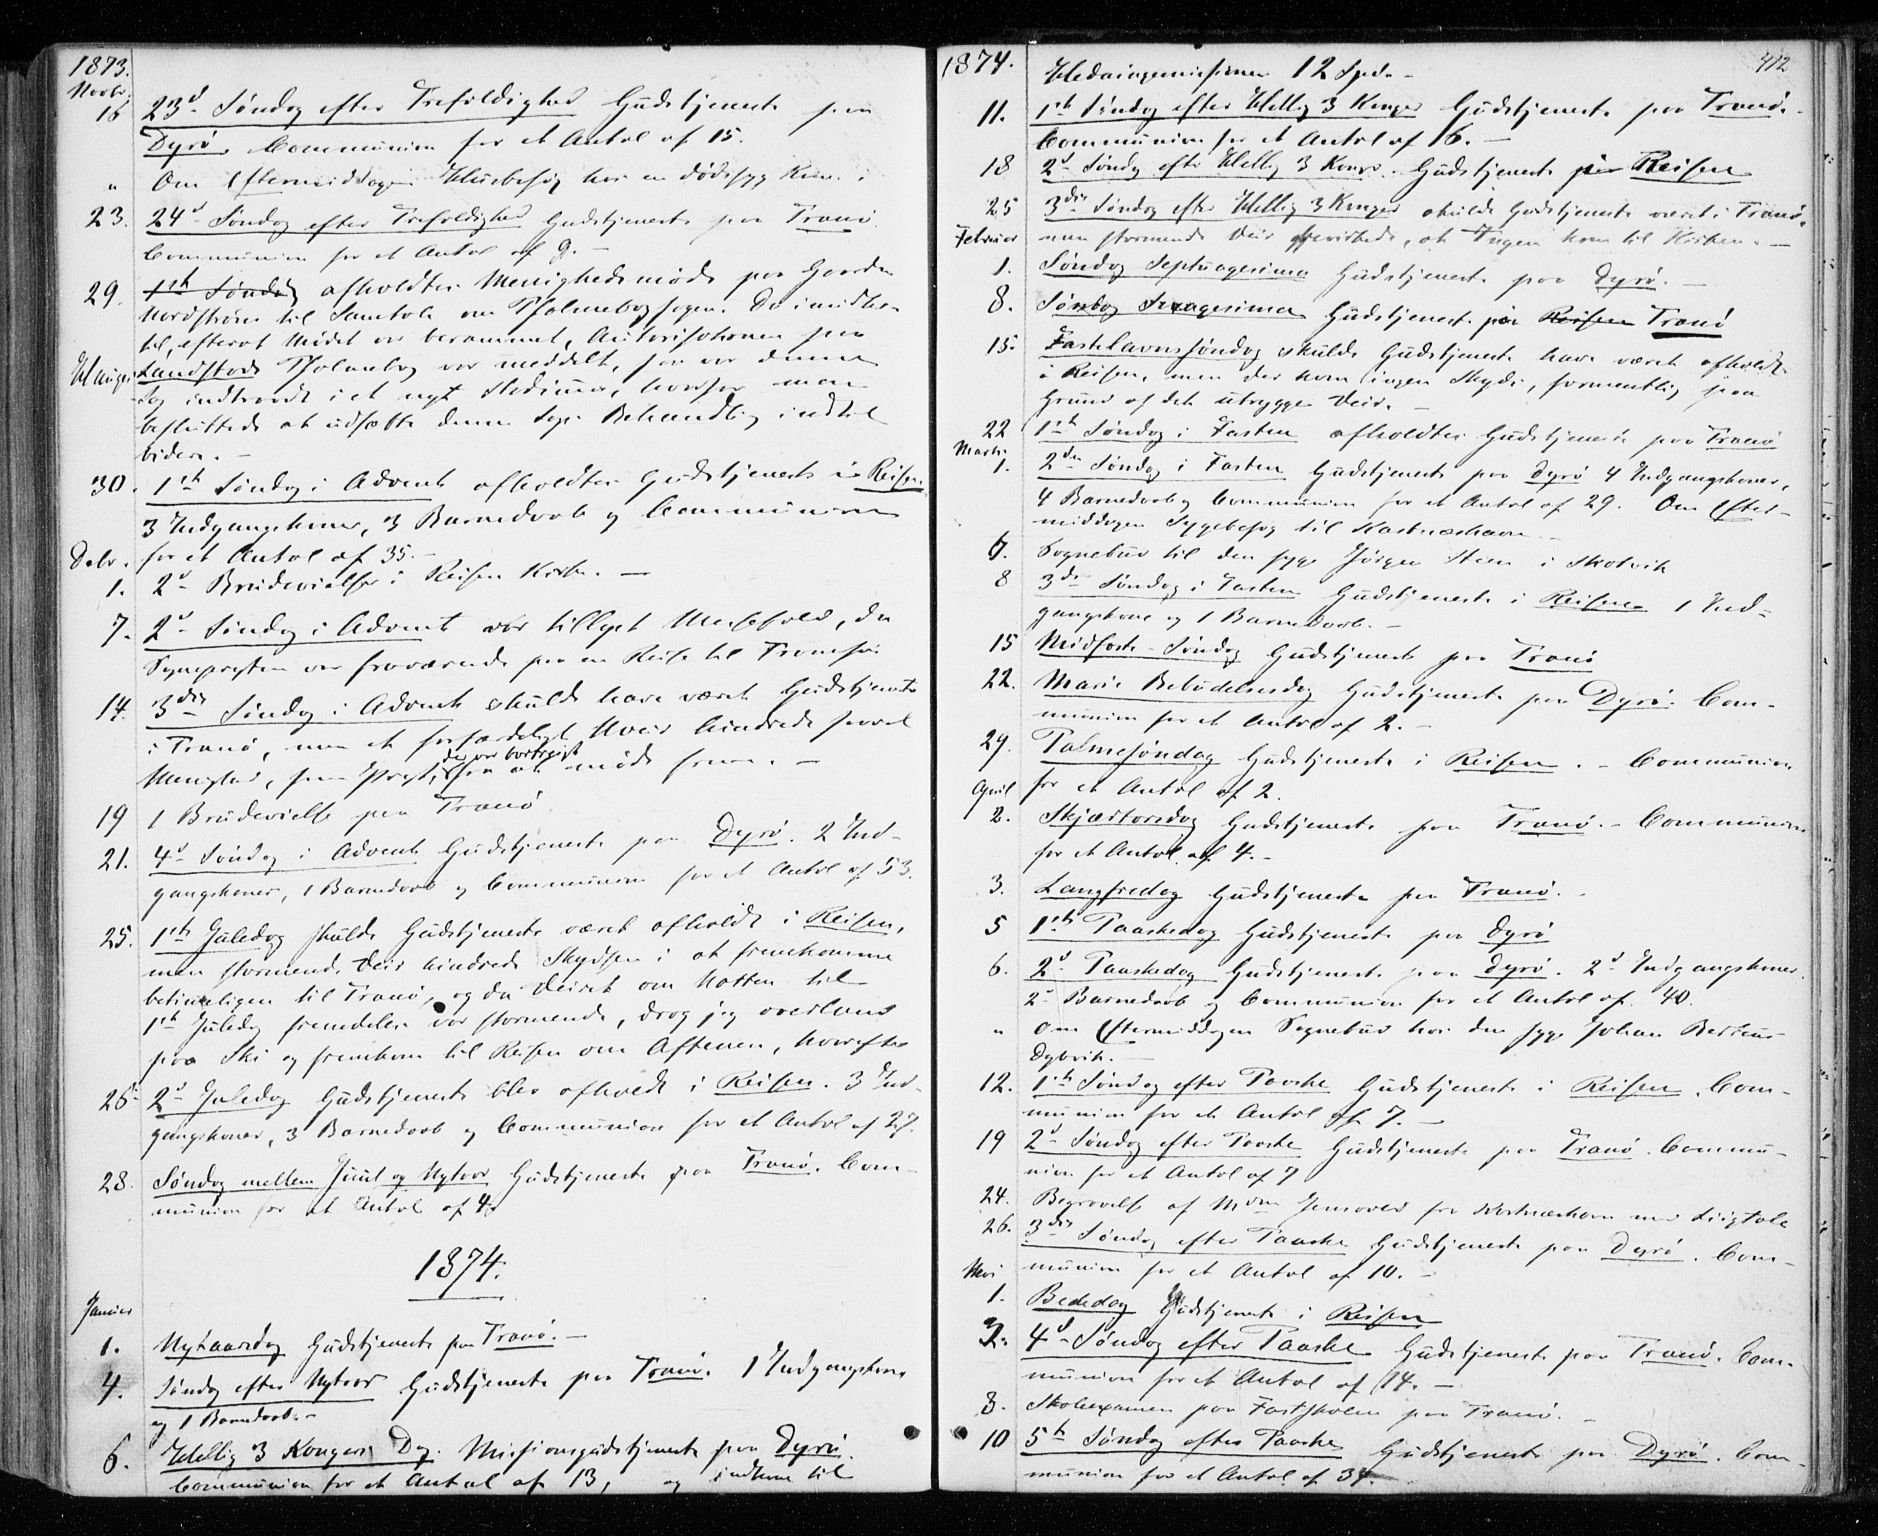 1873.
Novbr.
16 23d Søndag efter Trefoldighed Gudstjeneste paa
Dyrø. Communion for et Antal af 15.
" Om Eftermiddagen Huusbesøg hos en dødssyg
23. 24d Søndag efter Trefoldighed Gudstjeneste paa Tranø.
Communion for et Antal af 9. –
29. 1ste Søndag afholdtes Menighedsmøde paa Gaarden
til Samtale om Psalmebogsagen. Da imidler-
tid, efterat Mødet var berammet, Autorisationen paa
Landstads Psalmebog var meddelt, saa var denne
Sag indtraadt i et nyt Stadium, hvorfor man
besluttede at udsætte denne Sags Behandling indtil
videre. –
30. 1ste Søndag i Advent afholdtes Gudstjeneste i Reisen.
3 Indgangskoner, 3 Barnedaab og Communion
for et Antal af 35. –
Decbr.
1. 2d Brudevielser i Reisen Kirke. –
7. 2d Søndag i Advent var tillyst Messefald, da
Sognepresten var fraværende paa en Reise til Tromsø.
14. 3die Søndag i Advent skulde have været Gudstjeneste
i Tranø, men et forfærdeligt Veir hindrede saavel
Menighed, som Prest, der var bortreist fra at møde frem. –
19 1 Brudevielse paa Tranø.
21. 4d Søndag i Advent Gudstjeneste paa Dyrø. 2 Ind-
gangskoner, 1 Barnedaab og Communion for et Antal af 53.
25. 1ste Juledag skulde Gudstjeneste været afholdt i Reisen,
men stormende Veir hindrede Skydsen i at fremkomme
betimeligen til Tranø, og da Veiret om Natten til
1ste Juledag fremdeles var stormende, drog jeg overland
paa Ski og fremkom til Reisen om Aftenen, hvorefter
26. 2d Juledag Gudstjeneste blev afholdt i Reisen. 3 Ind-
gangskoner, 3 Barnedaab og Communion for et Antal af 27.
28. Søndag mellem Juul og Nytaar Gudstjeneste paa Tranø. Com-
munion for et Antal af 4.
1874.
Januar
1. Nytaarsdag Gudstjeneste paa Tranø. –
4. Søndag efter Nytaar Gudstjeneste paa Tranø. 1 Indgangskone
og 1 Barnedaab. –
6. Hellig 3 Kongers Dag. Missionsgudstjeneste paa Dyrø.
Communion for et Antal af 13, og indkom til
1874.
412
Hedningemissionen 12 Spd. –
11. 1ste Søndag efter Hellig 3 Konger Gudstjeneste paa Tranø. –
Communion for et Antal af 16. –
18 2d Søndag efter Hellig 3 Konger. Gudstjeneste paa Reisen
25 3die Søndag efter Hellig 3 Konger skulde Gudstjeneste været i Tranø,
men stormende Veir bevirkede, at Ingen kom til Kirken. –
Februar
1. Søndag Septuagesima Gudstjeneste paa Dyrø. –
8. Søndag Sexagesima Gudstjeneste paa Reisen Tranø
15. Fastelavnssøndag skulde Gudstjeneste have været afholdt
i Reisen, men der kom ingen Skyds, formentlig paa
Grund af det utrygge Veir. –
22 1ste Søndag i Fasten afholdtes Gudstjeneste paa Tranø
Marts
1. 2den Søndag i Fasten Gudstjeneste paa Dyrø 4 Indgangskoner,
4 Barnedaab og Communion for et Antal af 29. Om Efter-
middagen Sygebesøg til Kastneshavn. –
6. Sognebud til den syge Jørgen Steen i Skotvik
8 3die Søndag i Fasten Gudstjeneste i Reisen 1 Ind-
gangskone og 1 Barnedaab. –
15 Midfaste-Søndag Gudstjeneste paa Tranø
22. Marie Bebudelsesdag Gudstjeneste paa Dyrø. Com-
munion for et Antal af 2. –
29. Palmesøndag Gudstjeneste i Reisen. – Communion
for et Antal af 2.
April
2. Skjærtorsdag Gudstjeneste paa Tranø. – Communion
for et Antal af 4. –
3. Langfredag Gudstjeneste paa Tranø. –
5 1ste Paaskedag Gudstjeneste paa Dyrø
6. 2d Paaskedag Gudstjeneste paa Dyrø. 2d Indgangskoner.
2d Barnedaab og Communion for et Antal af 40.
" Om Eftermiddagen Sognebud hos den syge Johan
Dybvik. –
12. 1ste Søndag efter Paaske Gudstjeneste i Reisen. Com-
munion for et Antal af 7. –
19 2d Søndag efter Paaske Gudstjeneste paa Tranø. Commu-
nion for et Antal af 7
24. Begravelse af fra Kastneshavn med Liigtale
26. 3die Søndag efter Paaske Gudstjeneste paa Dyrø. Com-
munion for et Antal af 10. –
Mai
1. Bededag Gudstjeneste i Reisen
3. 4d Søndag efter Paaske Gudstjeneste paa Tranø. Com-
munion for et Antal af 14. –
8. Skoleexamen paa Fastskolen paa Tranø. –
10 5te Søndag efter Paaske Gudstjeneste paa Dyrø. Com-
munion for et Antal af 34.